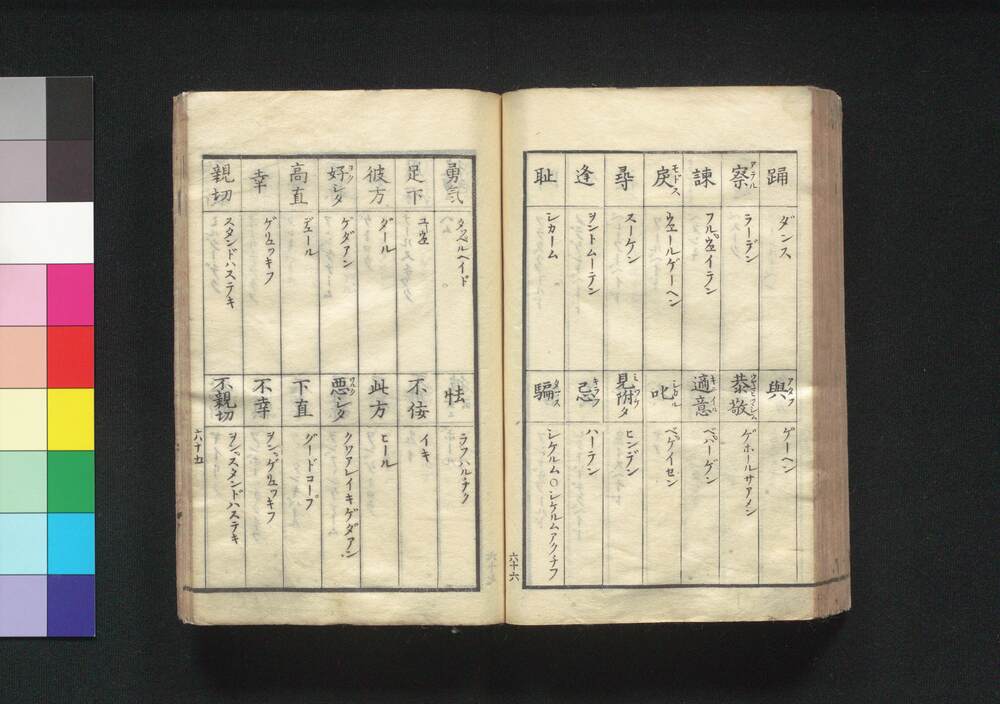 踊 ダンス
察 アテル ラーデン
諫 フルウェイテン
戻 モドス ウェールゲーヘン
尋 スーケン
逢 ヲントムーテン
耻 シカーム
與 アタフ ゲーヘン
恭敬 ゲホールサアメン
適意 ベハーゲン
叱 シカル ベゲイセン
見附タ ミツケ ヒンデン
忌 キラフ ハーテン
騙 シケルム○シケルムアクチフ
六十六
勇気 タッペルヘイド
足下 ユーウェ
彼方 ダール
好シタ ヨク ゲダアン
高直 デュール
幸 ゲリュッキフ
親切 スタンドハステキ
怯 ラフハルチク
不佞 イキ
此方 ヒール
悪シタ ワルク クワアレイキゲダアン
下直 グードコープ
不幸 ヲンゲリュッキフ
不親切 ヲンスタンドハステキ
六十五